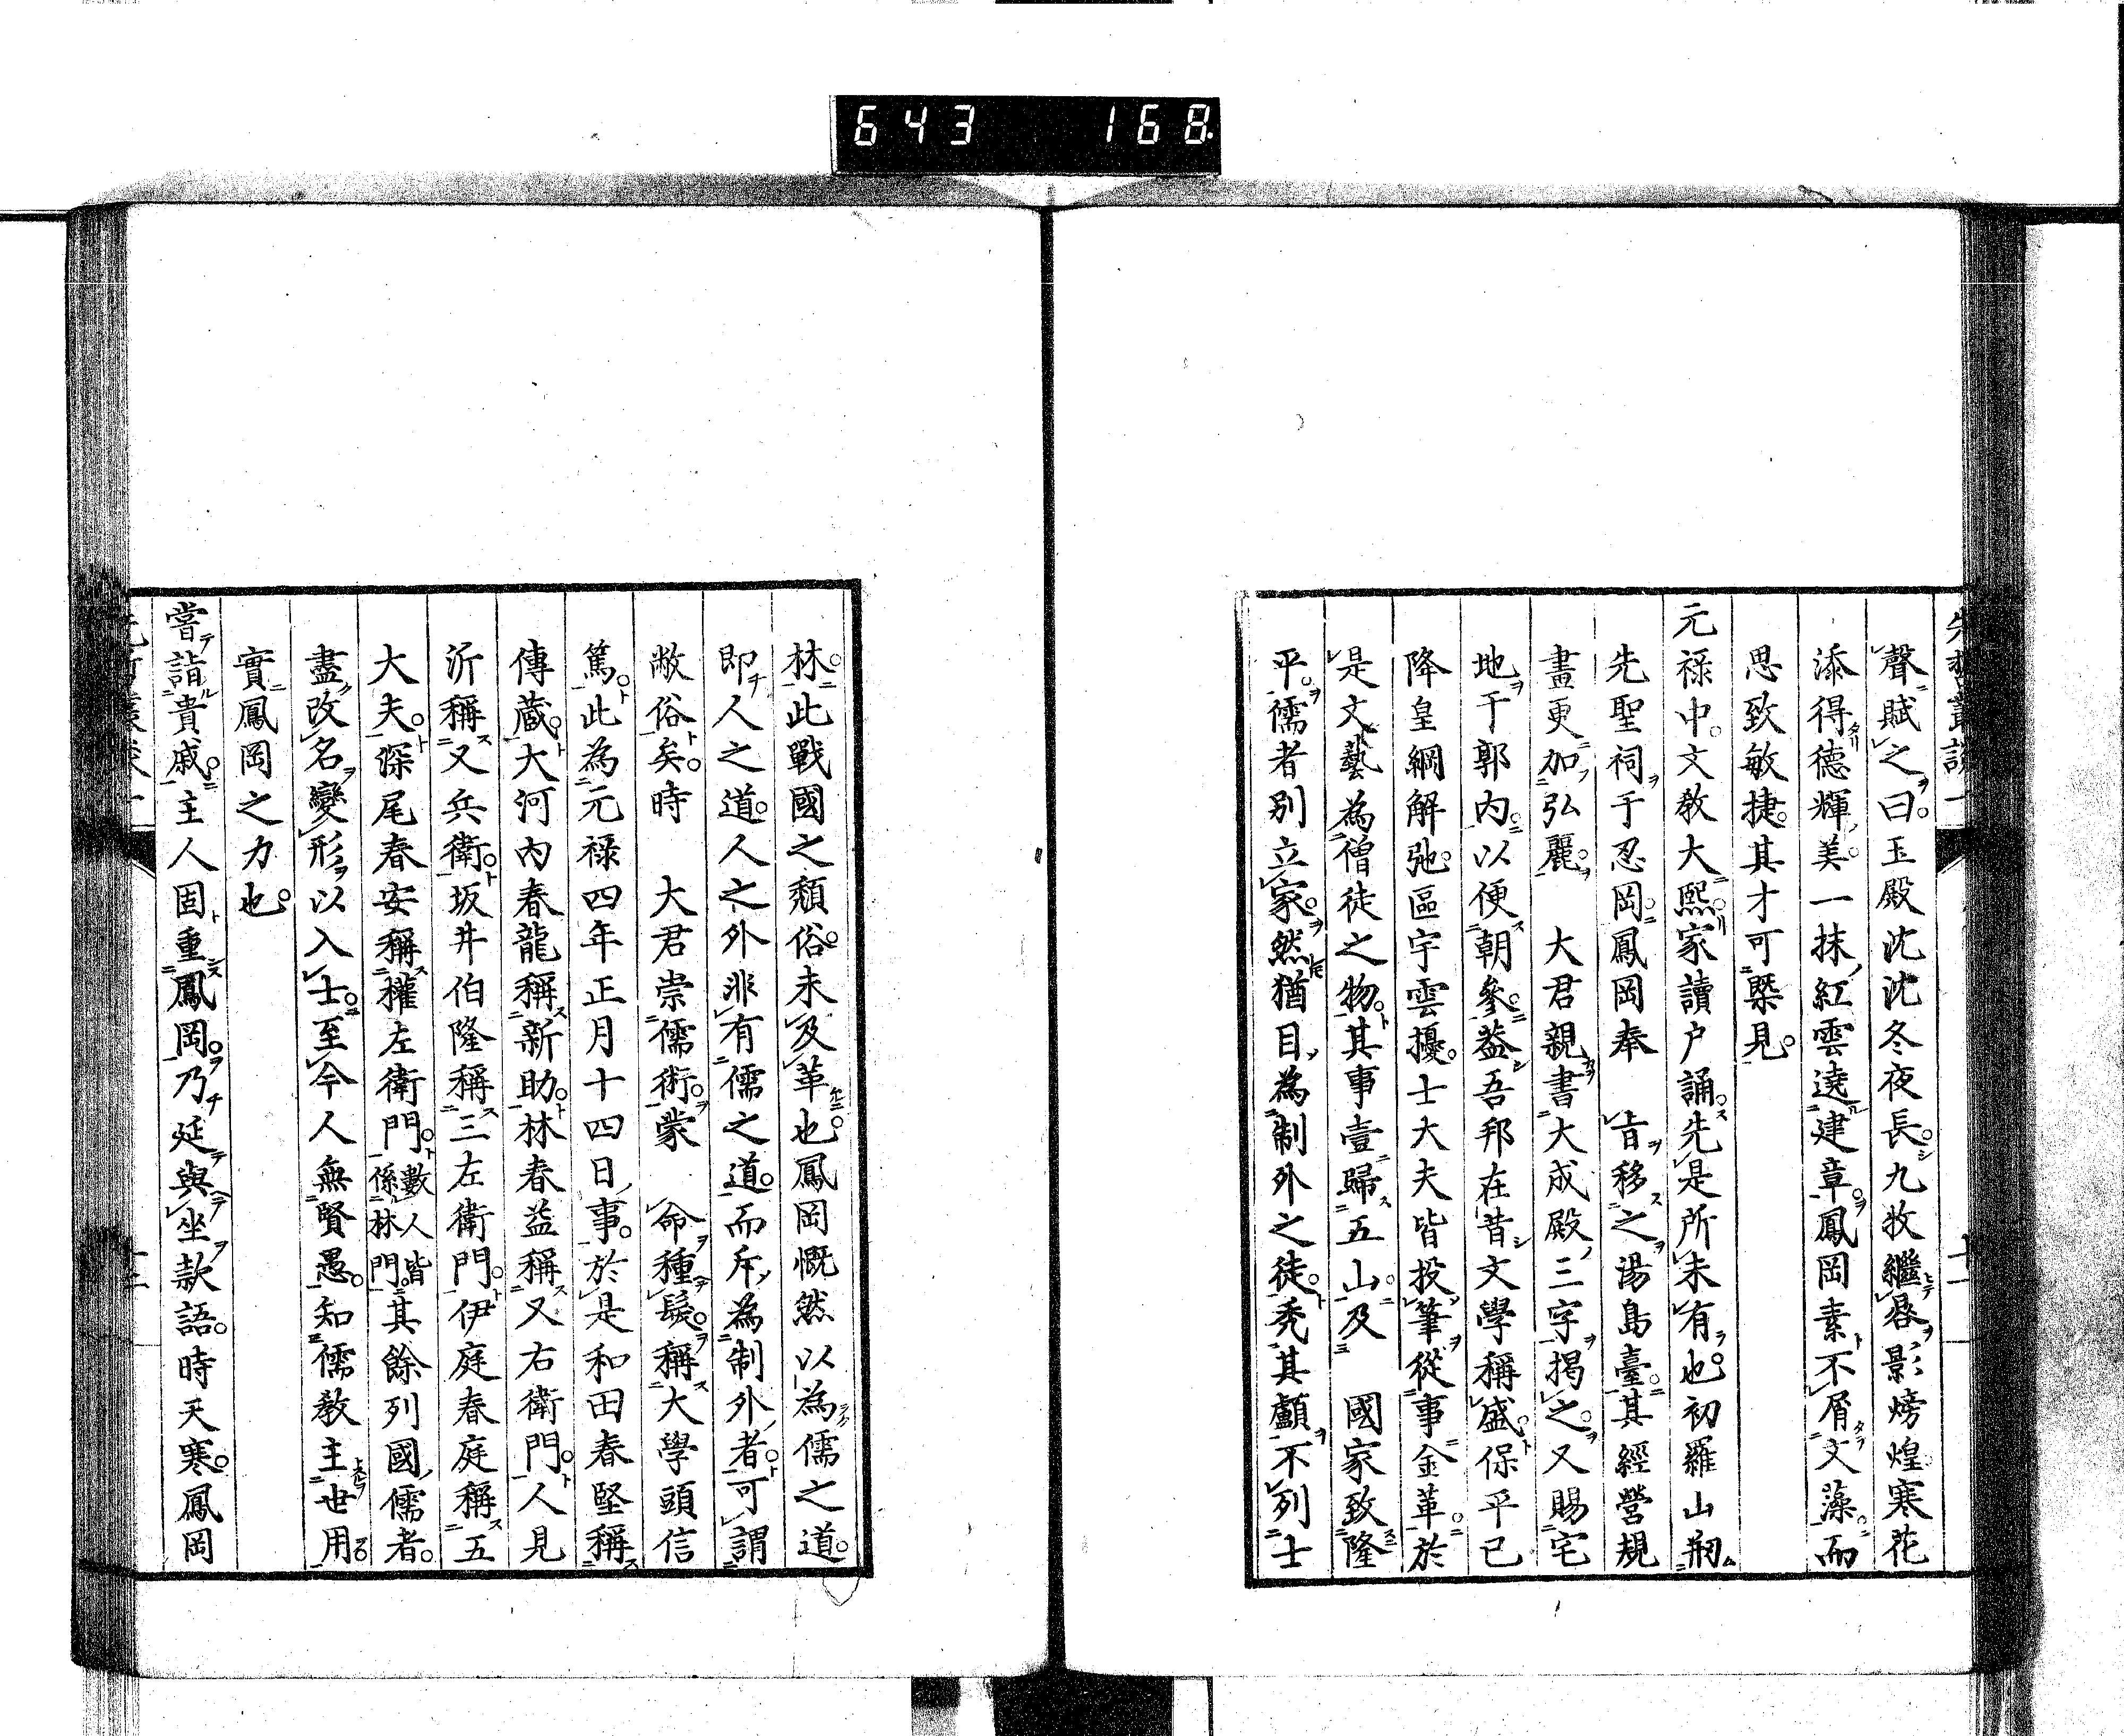 643 168
聲賦之曰玉殿沈沈冬夜長九枚繼晷影熒煌寒花
添得德輝美一抹紅雲遶建章鳳岡素不屑文藻而
思致敏捷其才可槩見
元祿中文教大熙家讀戶誦先是所未有也初羅山剏
先聖祠于忍岡鳳岡奉 旨移之湯島臺其經營規
畫更加弘麗 大君親書大成殿三字揭之又賜宅
地于郭內以便朝參葢吾邦在昔文學稱盛保平已
降皇綱解弛區宇雲擾士大夫皆投筆從事金革於
是文藝為僧徒之物其事壹歸五山及 國家致隆
平儒者別立家然猶目為制外之徒禿其顱不列士
林此戰國之頹俗未及革也鳳岡慨然以為儒之道
即人之道人之外非有儒之道而斥為制外者可謂
敝俗矣時 大君崇儒術蒙 命種髮稱大學頭信
篤此為元祿四年正月十四日事於是和田春堅稱
傳藏大河內春龍稱新助林春益稱又右衛門人見
沂稱又兵衛坂井伯隆稱三左衛門伊庭春庭稱五
大夫深尾春安稱權左衛門數人皆係林門其餘列國儒者
盡改名變形以入士至今人無賢愚知儒教主世用
實鳳岡之力也
嘗詣貴戚主人固重鳳岡乃延與坐款語時天寒鳳岡